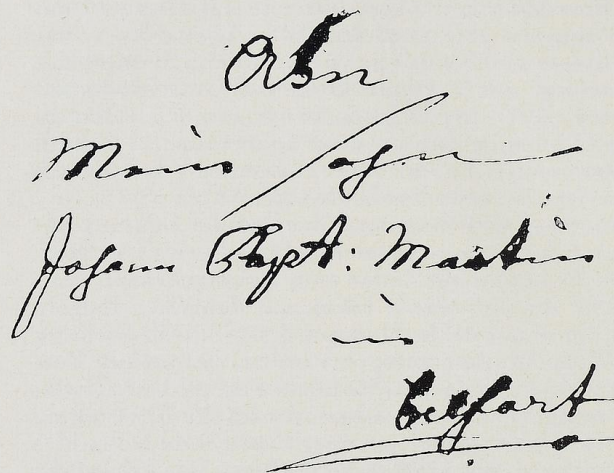 Mein Sohn
Johann Bapt: Martin
in
Belfort